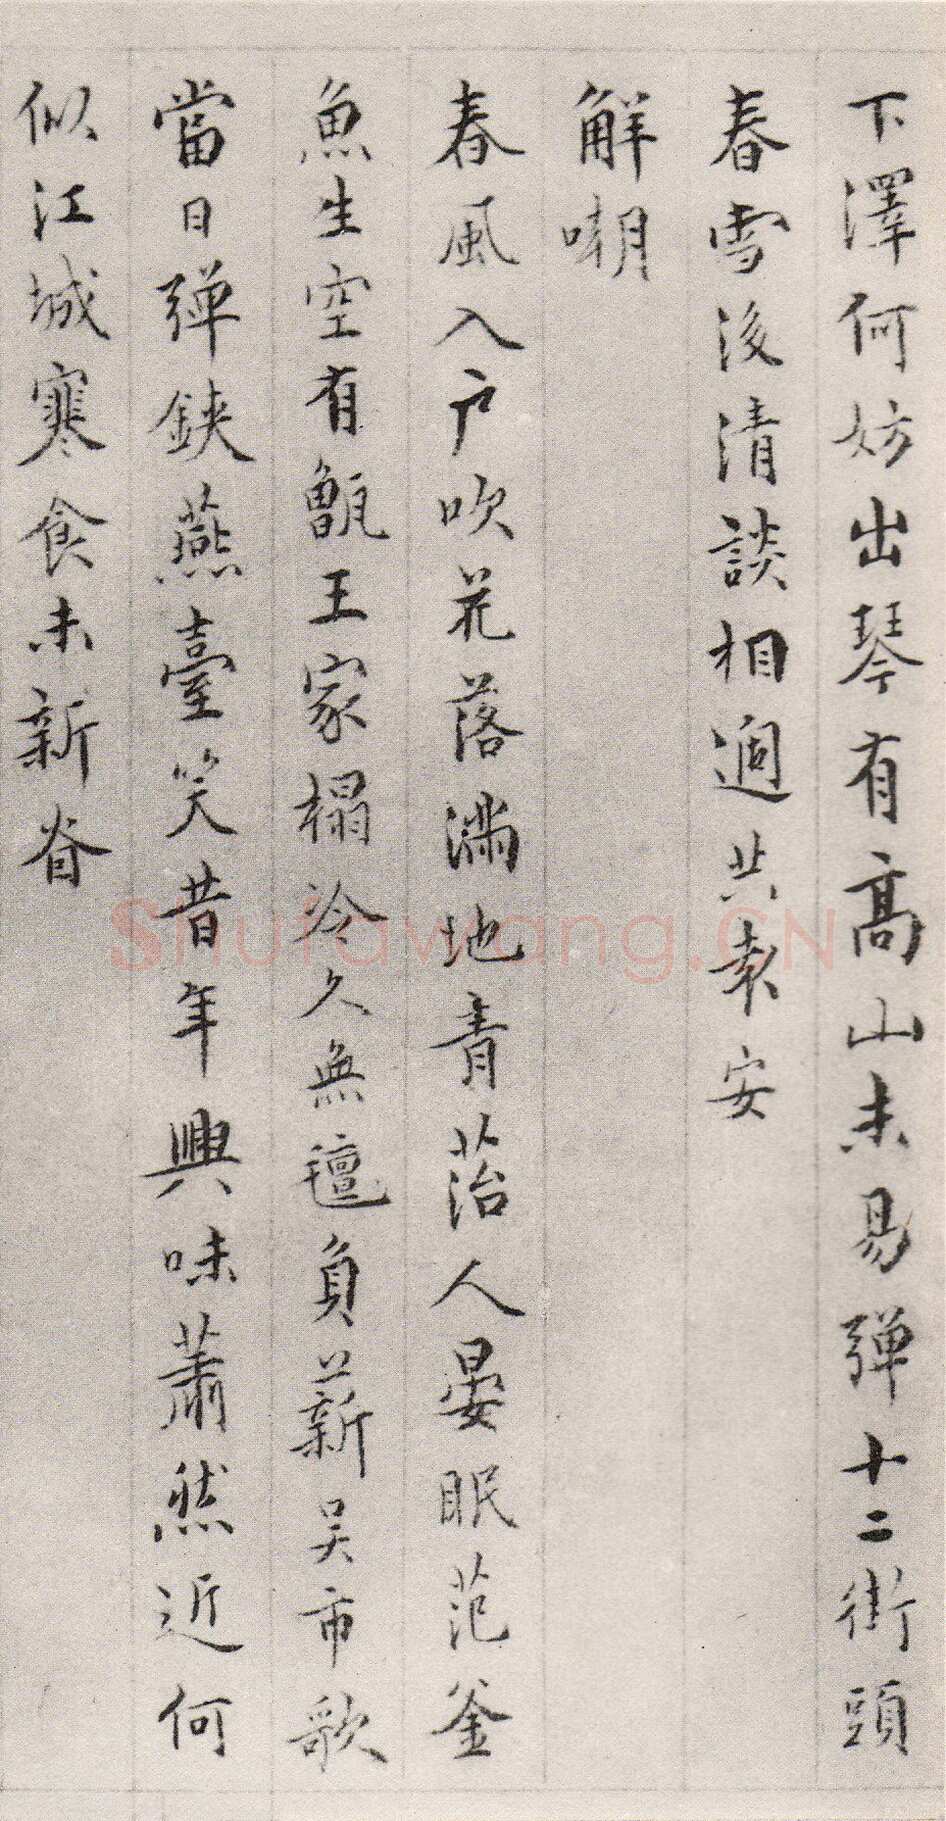 下澤何妨出琴有高山未易彈十二街頭
春雪後清談相過共袁安
解嘲
春風入户吹花落滿地青苔人晏眠范釜
魚生空有甑王家榻冷久無氊負薪吴市歌
當日彈鋏燕臺笑昔年興味蕭然近何
似江城寒食未新眷
Shufawang.CN